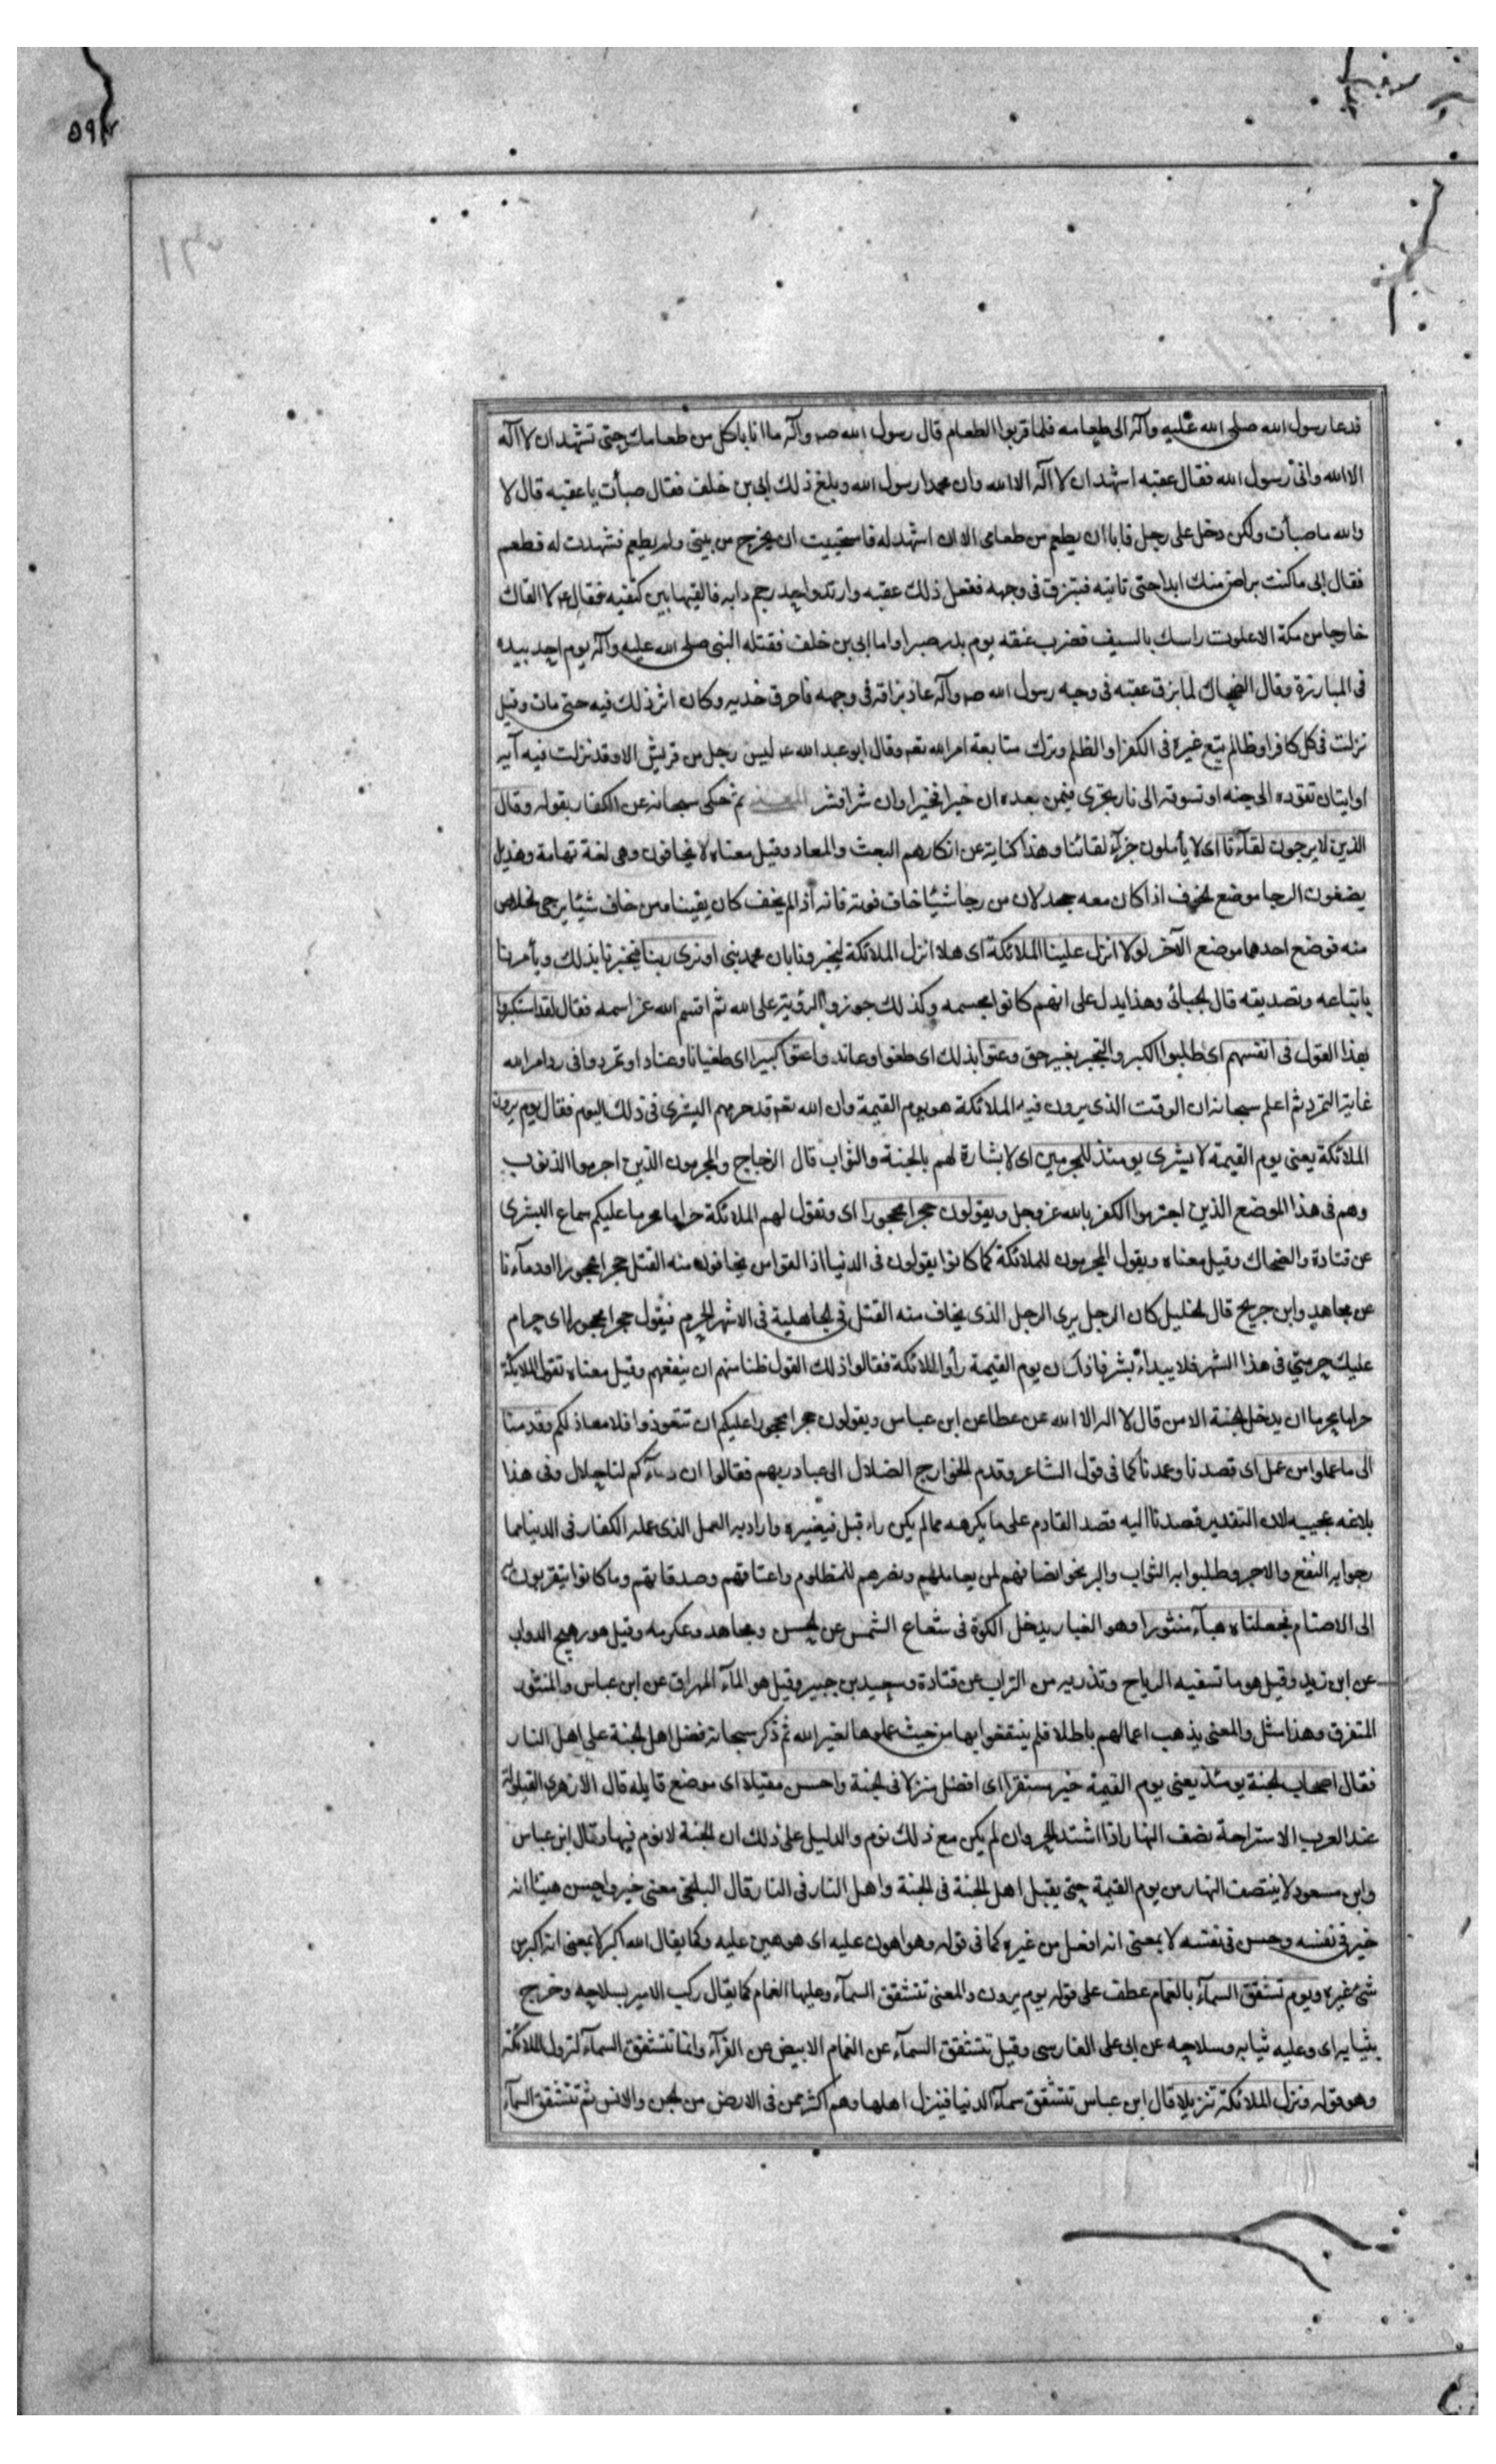 ٥٩٢
فدعا رسول الله صلى الله عليه وآله الى طعامه فلما قربوا الطعام قال رسول الله صه وآله ما انا باكل من طعامك حتى تشهد ان لا آله
الا الله وانى رسول الله فقال عقبه اشهد ان لا آله الا الله وان محمدا رسول الله وبلغ ذلك ابى بن خلف فقال صبأت يا عقبه قال لا
والله ما صبأت ولكن دخل على رجل فابا ان يطعم من طعامى الا ان اشهد له فاستحييت ان يخرج من بيتى ولم يطعم فشهدت له فطعم
فقال ابى ما كنت براض منك ابدا حتى تاتيه فتبزق فى وجهه ففعل ذلك عقبه وارتد واخذ رحم دابه فالقيها بين كتفيه فقال عم لا القاك
خارجا من مكة الا علوت راسك بالسيف فضرب عنقه يوم بدر صبرا واما ابى بن خلف فقتله النبى صلى الله عليه وآله يوم احد بيده
فى المبارزة وقال الضحاك لما بزق عقبه فى وجه رسول الله صه وآله عاد بزاقه فى وجهه فاحرق خديه وكان اثر ذلك فيه حتى مات وقيل
نزلت فى كل كافر او ظالم يتبع غيره فى الكفر او الظلم وترك متابعة امر الله تعه وقال ابو عبد الله عه ليس رجل من قريش الا وقد نزلت فيه آيه
او ايتان تقوده الى جنه او تسوقه الى نار يجزى فيمن بعده ان خيرا فخيرا وان شرا فشر ثم حكى سبحانه عن الكفار بقوله وقال
الذين لا يرجون لقآءنا اى لا يأملون جزآء لقائنا وهذا كناية عن انكارهم البعث والمعاد وقيل معناه لا يخافون وهى لغة تهامة وهذيل
يضعون الرجا موضع الخوف اذا كان معه جحد لان من رجا شيئا خاف فوته فانه اذا لم يخف كان يقينا ومن خاف شيئا يرجى الخلاص
منه فوضع احدهما موضع الآخر لولا انزل علينا الملائكة اى هلا انزل الملائكة ليخبرونا بان محمد نبى او نرى ربنا فيخبرنا بذلك ويأمرنا
باتباعه وتصديقه قال الجبائى وهذا يدل على انهم كانوا مجسمه وكذلك جوزوا الرؤية على الله ثم اقسم الله عز اسمه فقال لقد استكبروا
بهذا القول فى انفسهم اى طلبوا الكبر والتجبر بغير حق وعتوا بذلك اى طغوا وعاندوا عتوا كبيرا اى طغيانا وعنادا وتمردوا فى رد امر الله
غاية التمرد ثم اعلم سبحانه ان الوقت الذى يرون فيه الملائكة هو يوم القيمة وان الله تعه قد حرمهم البشرى فى ذلك اليوم فقال يوم يرون
الملائكة يعنى يوم القيمة لا بشرى يومئذ للمجرمين اى لا بشارة لهم بالجنة والثواب قال الزجاج والمجرمون الذين اجرموا الذنوب
وهم فى هذا الموضع الذين اجترموا الكفر بالله عز وجل ويقولون حجرا محجورا اى وتقول لهم الملائكة حراما محرما عليكم سماع البشرى
عن قتادة والضحاك وقيل معناه ويقول المجرمون للملائكة كما كانوا يقولون فى الدنيا اذا لقوا من يخافون منه القتل حجرا محجورا اودمآءنا
عن مجاهد وابن جريح قال الخليل كان الرجل يرى الرجل الذى يخاف منه القتل فى الجاهلية فى الاشهر الحرم فيقول حجرا محجورا اى حرام
عليك حرمتى فى هذا الشهر فلا يبداء بشر فاذا كان يوم القيمة رأوا الملائكة فقالوا ذلك القول ظنا منهم ان ينفعهم وقيل معناه تقول الملائكة
حراما محرما ان يدخل الجنة الا من قال لا اله الا الله عن عطا عن ابن عباس ويقولون حجرا محجورا عليكم ان تتعوذوا فلا معاذ لكم وقدمنا
الى ما عملوا من عمل اى قصدنا وعمدنا كما فى قول الشاعر وقدم الخوارج الضلال الى عباد ربهم فقالوا ان دمآءكم لنا حلال وفى هذا
بلاغه عجيبه لان التقدير قصدنا اليه قصد القادم على ما يكرهه مما لم يكن راه قبل فيغيره واراد به العمل الذى عمله الكفار فى الدنيا مما
رجوا به النفع والاجر وطلبوا به الثواب والبر نحو انصافهم لمن يعاملهم ونصرهم للمظلوم واعتاقهم وصدقاتهم وما كانوا يتقربون
الى الاصنام فجعلناه هبآء منثورا وهو الغبار يدخل الكوة فى شعاع الشمس عن الحسن ومجاهد وعكرمه وقيل هو رهج الدواب
عن ابن زيد وقيل هو ما تسفيه الرياح وتذريه من التراب عن قتادة وسعيد بن جبير وقيل هو المآء المهراق عن ابن عباس والمنثور
المتفرق وهذا مثل والمعنى يذهب اعمالهم باطلا فلم ينتفعوا بها من حيث عملوها لغير الله ثم ذكر سبحانه فضل اهل الجنة على اهل النار
فقال اصحاب الجنة يومئذ يعنى يوم القيمة خير مستقرا اى افضل منزلا فى الجنة واحسن مقيلا اى موضع قايله قال الازهرى القيلولة
عند العرب الاستراحة نصف النهار اذا اشتد الحر وان لم يكن مع ذلك نوم والدليل على ذلك ان الجنة لا نوم فيها وقال ابن عباس
وابن مسعود لا ينتصف النهار من يوم القيمة حتى يقبل اهل الجنة فى الجنة واهل النار فى النار قال البلخى معنى خير واحسن هيهنا انه
خير فى نفسه وحسن فى نفسه لا بمعنى انه افضل من غيره كما فى قوله وهو اهون عليه اى هو هين عليه وكما يقال الله اكبر لا بمعنى انه اكبر من
شئ غيره ويوم تشقق السمآء بالغمام عطف على قوله يوم يرون والمعنى تتشقق السمآء وعليها الغمام كما يقال ركب الامير بسلاحه وخرج
بثيابه اى وعليه ثيابه وسلاحه عن ابى على الفارسى وقيل تتشقق السمآء عن الغمام الابيض عن الفرآء وانما تتشقق السمآء لنزول الملائكة
وهو قوله ونزل الملائكة تنزيلا قال ابن عباس تتشقق سمآء الدنيا فينزل اهلها وهم اكثر ممن فى الارض من الجن والانس ثم تتشقق السمآء